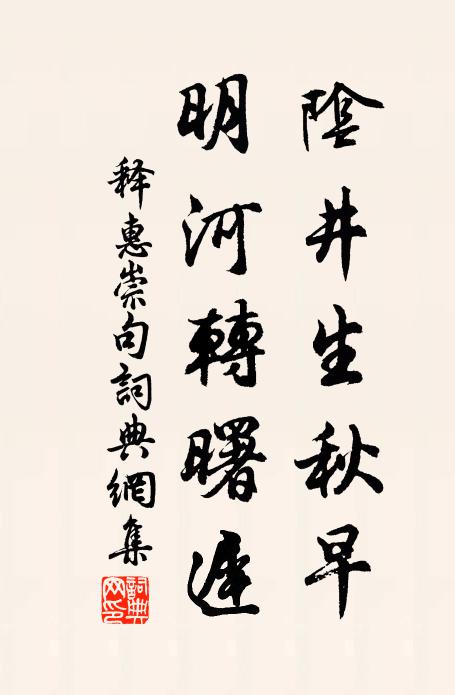 陰井生秋早
明河轉曙遲
释惠崇句詞典網集
詞典網印